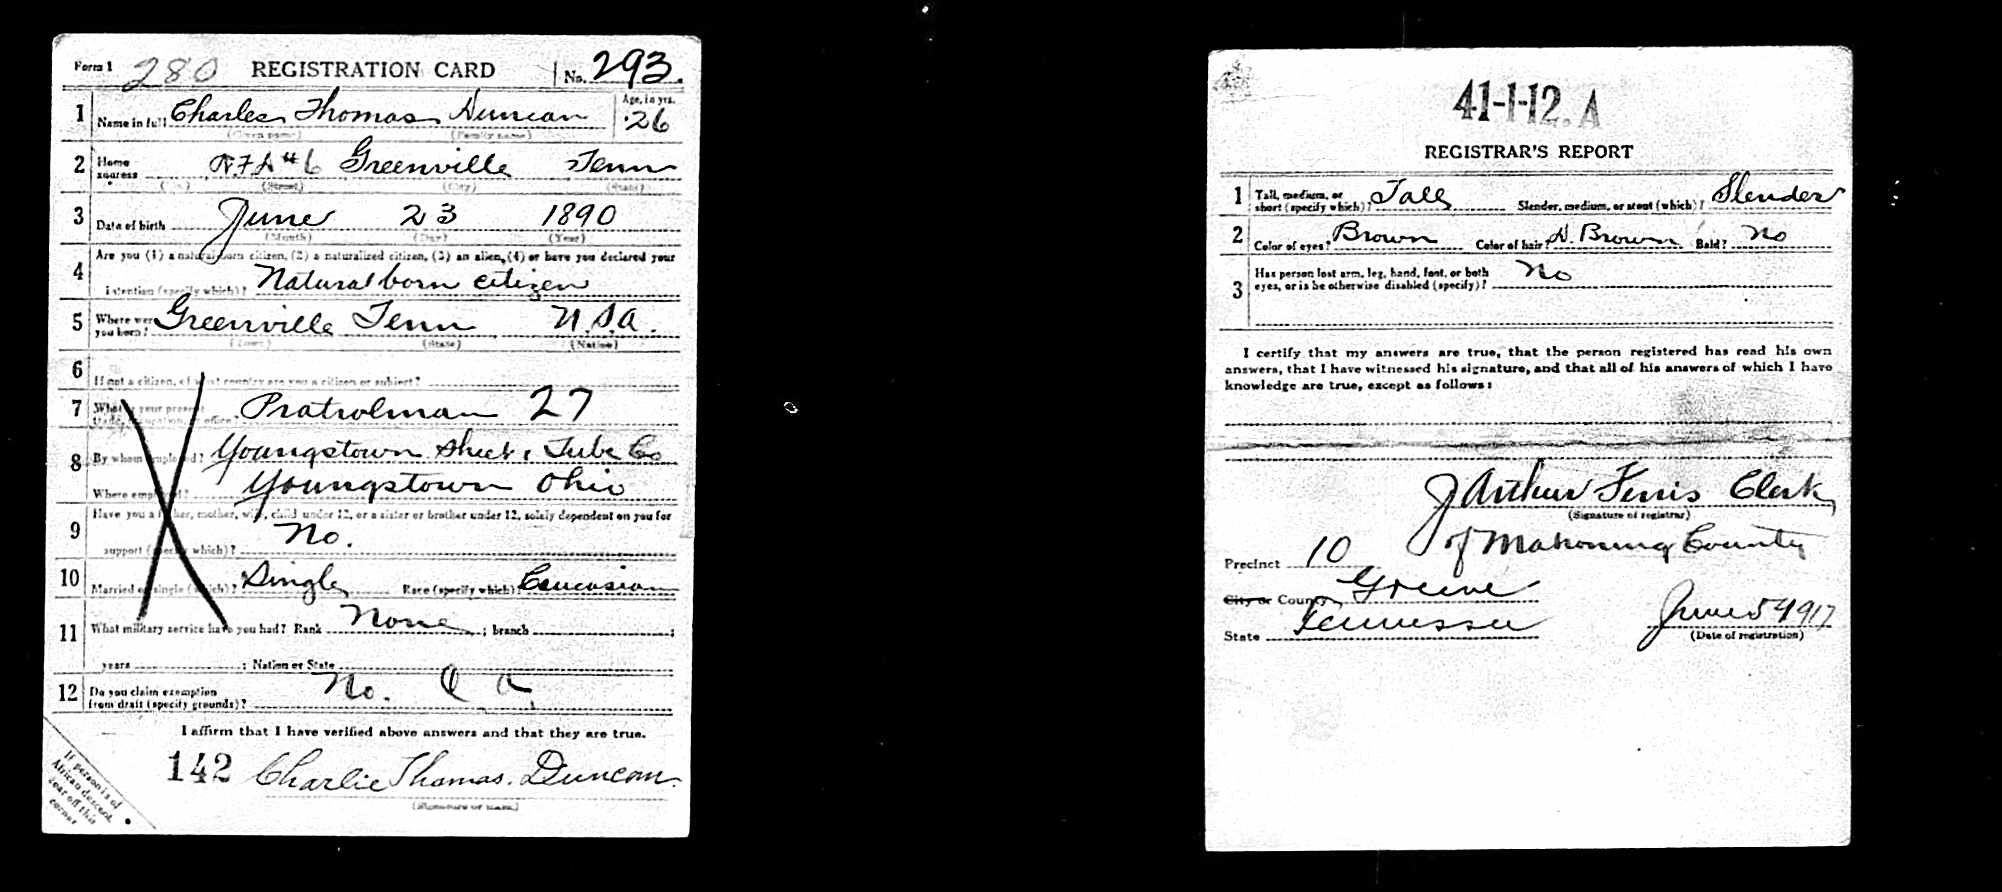 Form 1 280 REGISTRATION CARD No. 293.
1 Name in full Charles Thomas Duncan Age, in yrs. 26
(Given name) (Family name)
2 Home address RFD #6 Greenville Tenn
(No.) (Street) (City) (State)
3 Date of birth June 23 1890
(Month) (Day) (Year)
4 Are you (1) a natural-born citizen, (2) a naturalized citizen, (3) an alien, (4) or have you declared your
intention (specify which)? Natural born citizen
5 Where were you born? Greenville Tenn U.S.A.
(Town) (State) (Nation)
6 If not a citizen, of what country are you a citizen or subject?
7 What is your present trade, occupation, or office? Pratrolman 27
8 By whom employed? Youngstown Sheet & Tube Co
Where employed? Youngstown Ohio
9 Have you a father, mother, wife, child under 12, or a sister or brother under 12, solely dependent on you for
support (specify which)? No.
10 Married or single (which)? Single Race (specify which)? Caucasian
11 What military service have you had? Rank None ; branch ;
years ; Nation or State
12 Do you claim exemption from draft (specify grounds)? No.
I affirm that I have verified above answers and that they are true.
142 Charlie Thomas. Duncan.
If person is of
African descent,
tear off this
corner
41-1-12. A
REGISTRAR'S REPORT
1 Tall, medium, or short (specify which)? Tall Slender, medium, or stout (which)? Slender
2 Color of eyes? Brown Color of hair? D. Brown Bald? No
3 Has person lost arm, leg, hand, foot, or both
eyes, or is he otherwise disabled (specify)? No
I certify that my answers are true, that the person registered has read his own
answers, that I have witnessed his signature, and that all of his answers of which I have
knowledge are true, except as follows:
J Arthur Ferris Clerk
(Signature of registrar)
of Mahoning County
Precinct 10
City or County Greene
State Tennessee June 5 1917
(Date of registration)